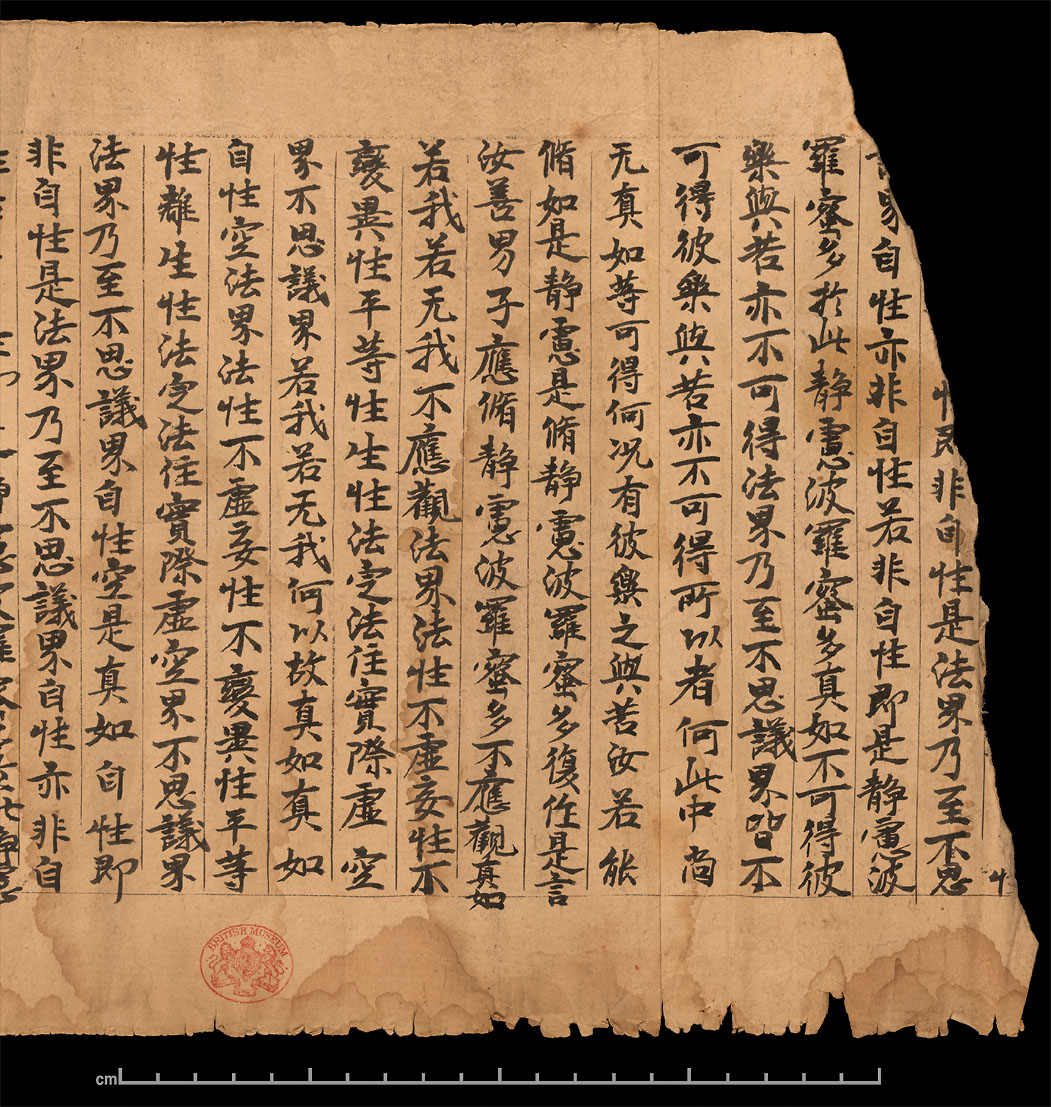 性即非自性是法界乃至不思
議界自性亦非自性若非自性即是静慮波
羅蜜多於此静慮波羅蜜多真如不可得彼
樂與苦亦不可得法界乃至不思議界皆不
可得彼樂與苦亦不可得所以者何此中尚
无真如等可得何况有彼樂之與苦汝若能
脩如是静慮是脩静慮波羅蜜多復作是言
汝善男子應脩静慮波羅蜜多不應觀真如
若我若无我不應觀法界法性不虛妄性不
變異性平等性生性法定法住實際虛空
界不思議界若我若无我何以故真如真如
自性空法界法性不虛妄性不變異性平等
性離生性法定法住實際虛空界不思議界
法界乃至不思議界自性空是真如自性即
非自性是法界乃至不思議界自性亦非自
BRITISH MUSEUM
cm